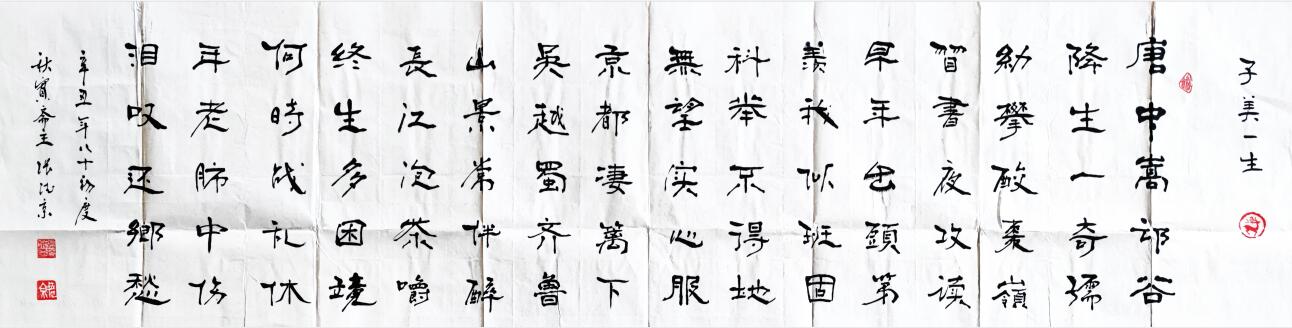 子美一生
唐中嵩邙谷
降生一奇孺
幼攀酸棗嶺
習書夜攻读
早年出頭第
羨我似班固
科举不得地
無望实心服
京都凄萬下
吴越蜀齐魯
山景常伴醉
長江泡茶嚼
終生多困境
何時战乱休
年老肺中伤
泪叹还鄉愁
辛丑年八十初度
秋實斋主张京